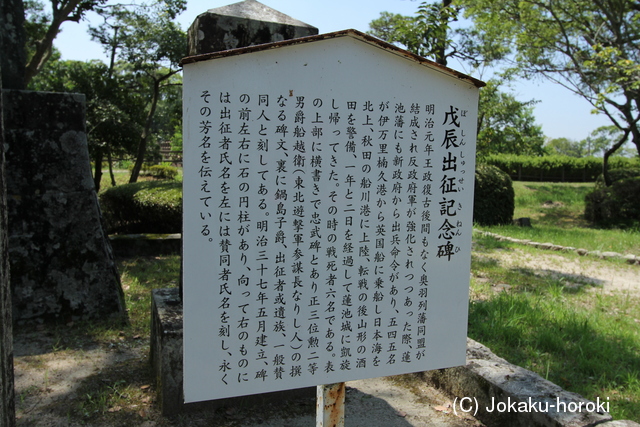 戊辰出征記念碑
ぼしんしゅっせいきねんひ
明治元年王政復古後間もなく奥羽列藩同盟が
結成され反政府軍が強化されつつあった際、蓮
池藩にも新政府から出兵命令があり、五四五名
が伊万里楠久港から英国船に乗船し日本海を
北上、秋田の船川港に上陸、転戦の後山形の酒
田を警備、一年と二日を経過して蓮池城に凱旋
し帰ってきた。その時の戦死者六名である。表
の上部に横書きで忠武碑とあり正三位勲二等
男爵船越衛(東北遊撃軍参謀長なりし人)の撰
なる碑文、裏に鍋島子爵、出征者或遺族、一般賛
同人と刻してある。明治三十七年五月建立、碑
の前左右に石の円柱があり、向って右のものに
は出征者氏名を左には賛同者氏名を刻し、永く
その芳名を伝えている。
(C) Jokaku-horoki